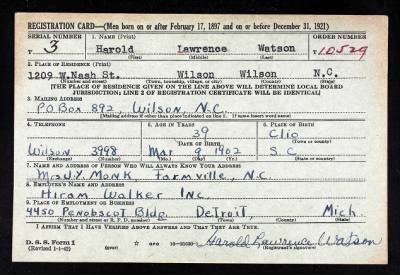 REGISTRATION CARD—(Men born on or after February 17, 1897 and on or before December 31, 1921)
SERIAL NUMBER 1. NAME (Print) ORDER NUMBER
T 3 Harold Lawrence Watson 10529
(First) (Middle) (Last)
2. PLACE OF RESIDENCE (Print)
1209 W. Nash St. Wilson Wilson N.C.
(Number and street) (Town, township, village, or city) (County) (State)
[THE PLACE OF RESIDENCE GIVEN ON THE LINE ABOVE WILL DETERMINE LOCAL BOARD
JURISDICTION; LINE 2 OF REGISTRATION CERTIFICATE WILL BE IDENTICAL]
3. MAILING ADDRESS
PO Box 892, Wilson, N.C.
[Mailing address if other than place indicated on line 2. If same insert word same]
4. TELEPHONE 5. AGE IN YEARS 6. PLACE OF BIRTH
39 Clio
DATE OF BIRTH (Town or county)
Wilson 3998 Mar 9 1902 S.C.
(Exchange) (Number) (Mo.) (Day) (Yr.) (State or country)
7. NAME AND ADDRESS OF PERSON WHO WILL ALWAYS KNOW YOUR ADDRESS
Mrs. J.Y. Monk, Farmville, N.C.
8. EMPLOYER'S NAME AND ADDRESS
Hiram Walker Inc.
9. PLACE OF EMPLOYMENT OR BUSINESS
4450 Penobscot Bldg. Detroit, Mich
(Number and street or R. F. D. number) (Town) (County) (State)
I AFFIRM THAT I HAVE VERIFIED ABOVE ANSWERS AND THAT THEY ARE TRUE.
D. S. S. Form 1
(Revised 1-1-42) (over) Harold Lawrence Watson
(Registrant's signature)